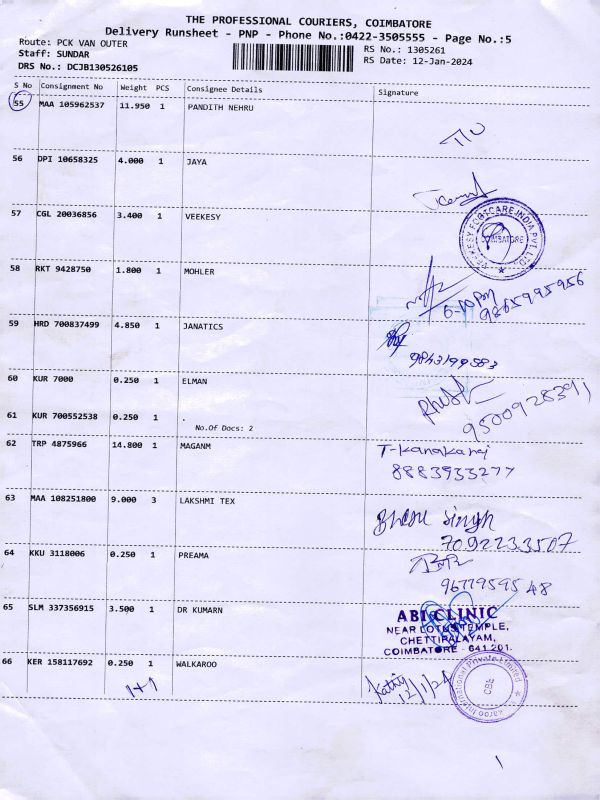 THE PROFESSIONAL COURIERS, COIMBATORE
Delivery Runsheet - PNP - Phone No.:0422-3505555 - Page No.:5
Route: PCK VAN OUTER
RS No.: 1305261
Staff: SUNDAR
RS Date: 12-Jan-2024
DRS No.: DCJB130526105
S No Consignment No Weight PCS Consignee Details Signature
55 MAA 105962537 11.950 1 PANDITH NEHRU
56 DPI 10658325 4.000 1 JAYA
57 CGL 20036856 3.400 1 VEEKESY
COIMBATORE
58 RKT 9428750 1.800 1 MOHLER
6-10pm
9865995956
59 HRD 700837499 4.850 1 JANATICS
9843199583
60 KUR 7000 0.250 1 ELMAN
9500928391
61 KUR 700552538 0.250 1 .
No.Of Docs: 2
62 TRP 4875966 14.800 1 MAGANM
T-kanakaraj
8883933277
63 MAA 108251800 9.000 3 LAKSHMI TEX
Singh
7092233507
64 KKU 3118006 0.250 1 PREAMA
9677959548
65 SLM 337356915 3.500 1 DR KUMARN
ABI CLINIC
NEAR LOTUS TEMPLE,
CHETTIPALAYAM,
COIMBATORE - 641 201.
66 KER 158117692 0.250 1 WALKAROO
1+1
12/1/24
karoo International Private Limited
CBE